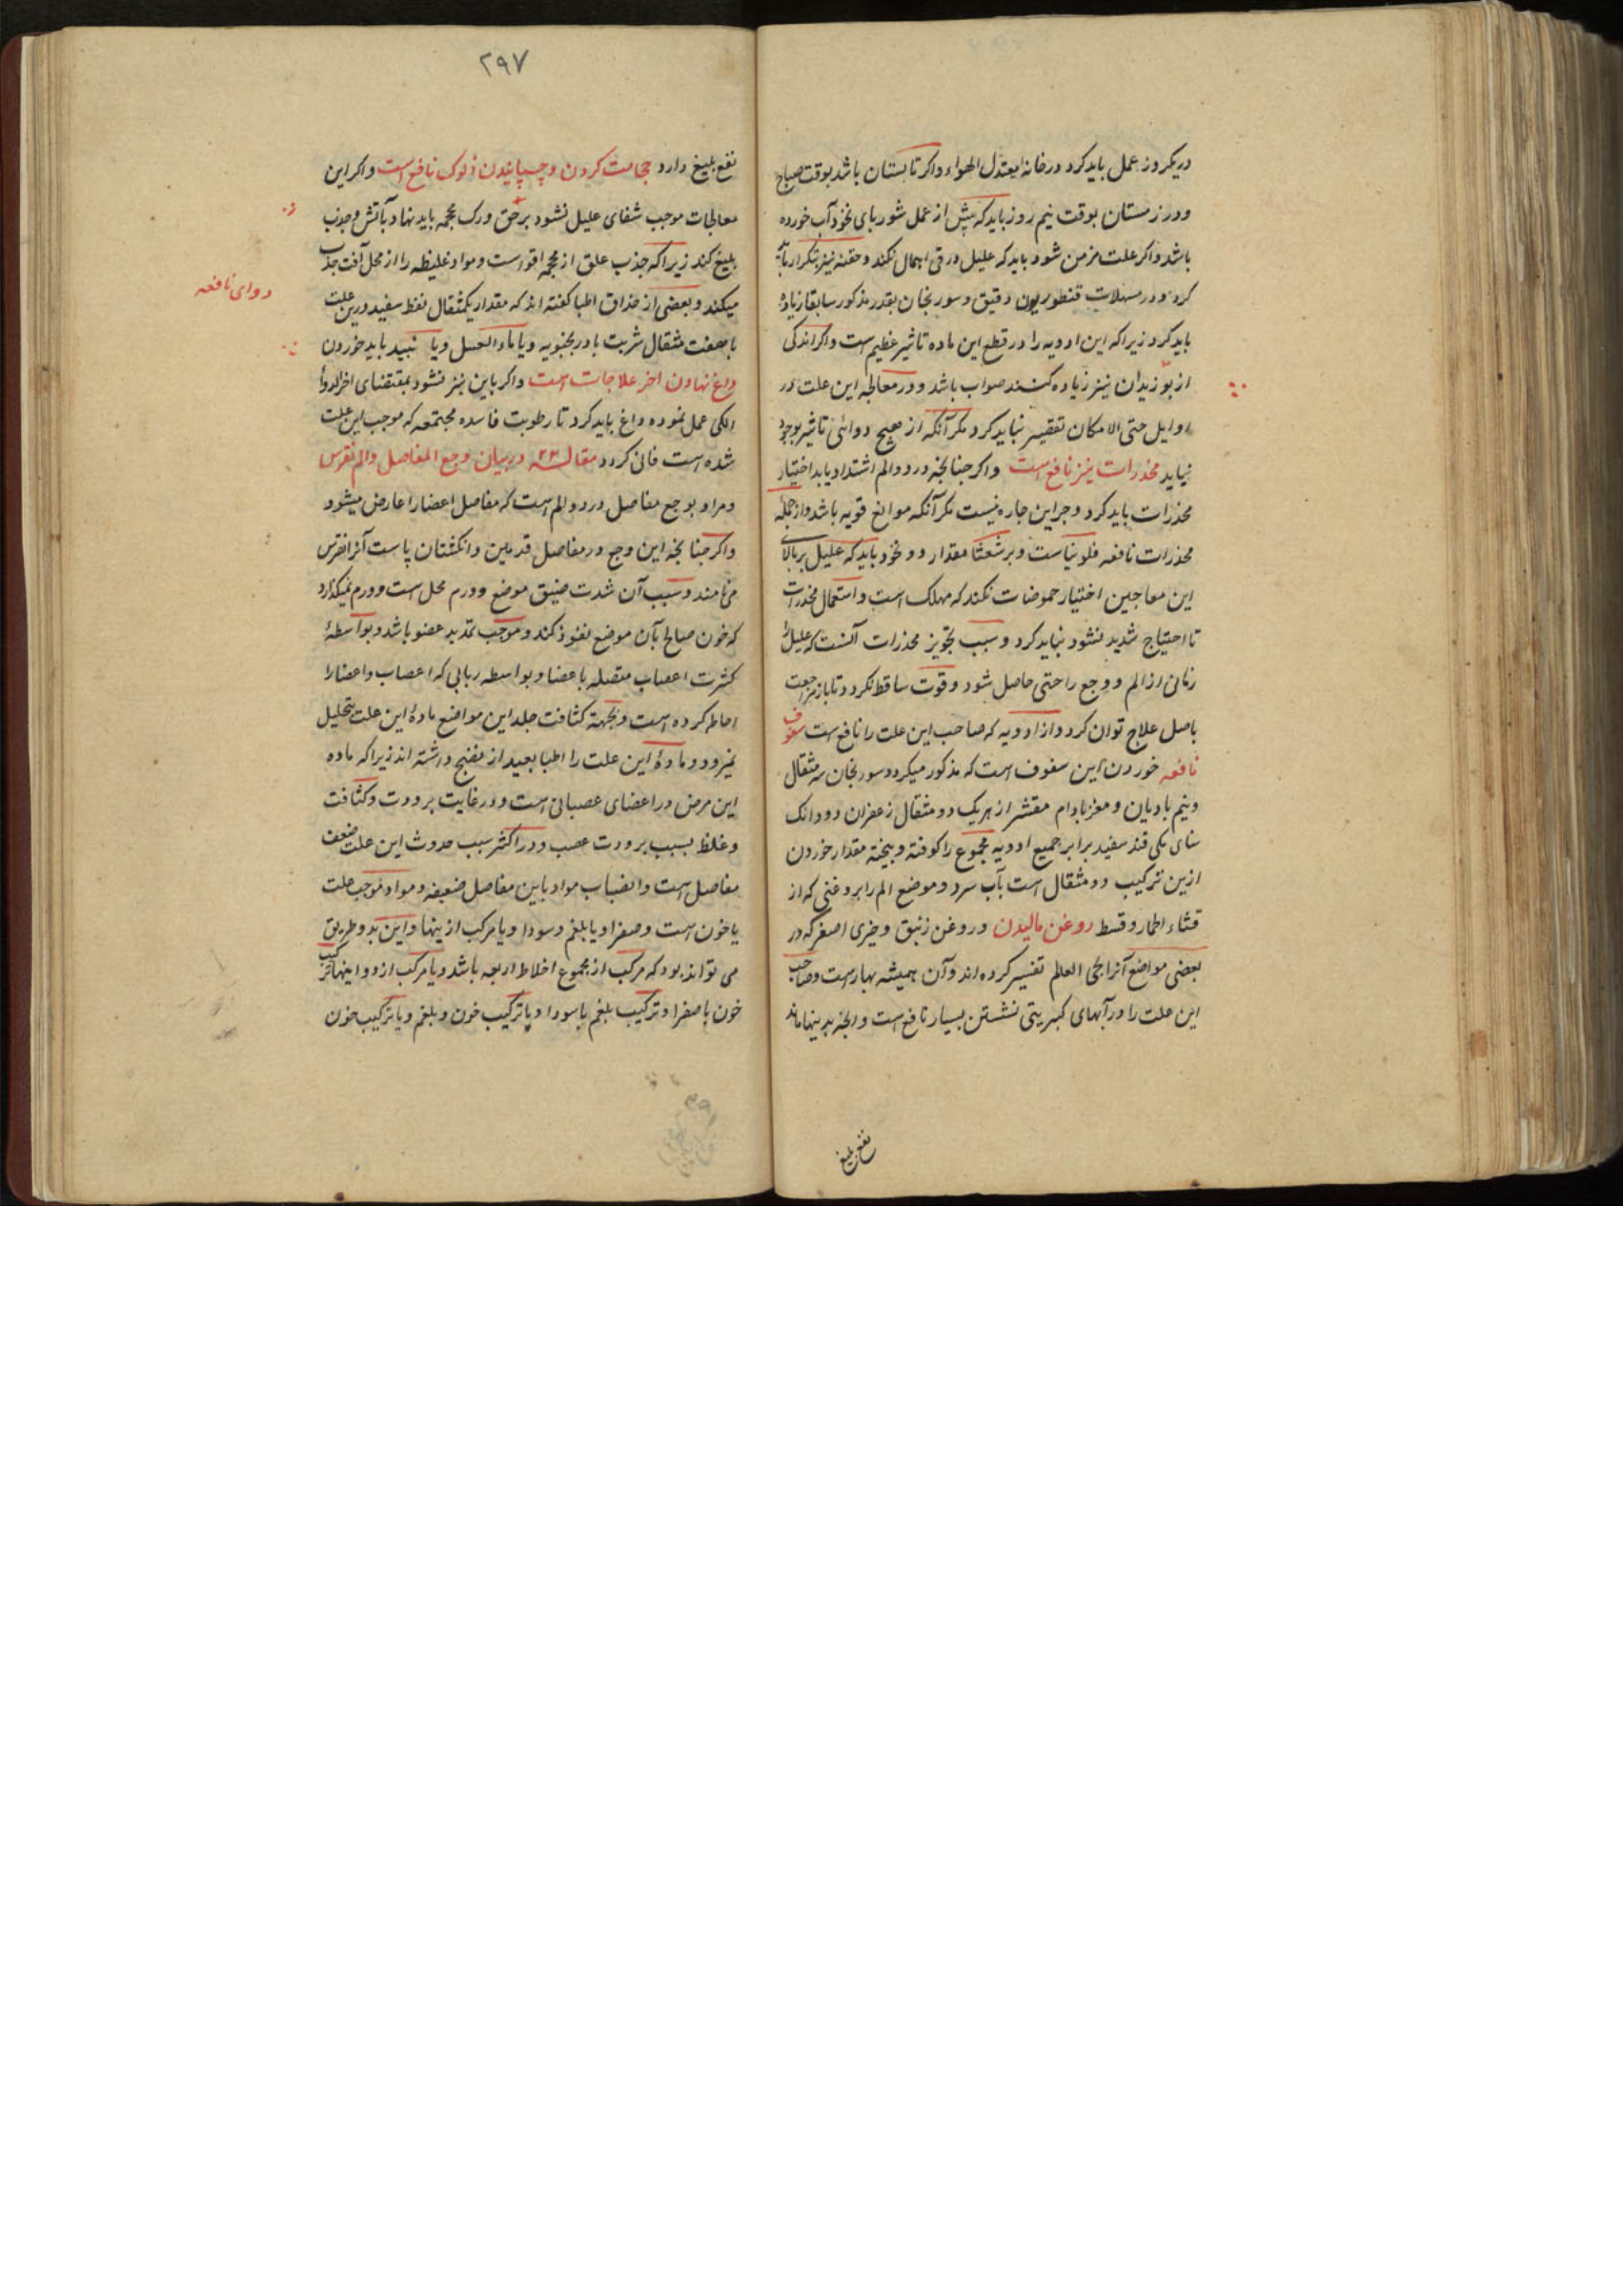 در یکروز عمل باید کرد در خانه معتدل الهواء و اکر تابستان باشد بوقت صباح
و در زمستان بوقت نیم روز باید که پیش از عمل شوربای نخود آب خورده
باشد و اکر علت مزمن شود باید که علیل در قی اهمال نکند و حقنه نیز بتکرار باید
کرد و در مسهلات قنطوریون دقیق و سورنجان بقدر مذکور سابقا زیاده
باید کرد زیرا که این ادویه را در قطع این ماده تاثیر عظیم است و اکر اندکی
از بوزیدان نیز زیاده کنند صواب باشد و در معالجه این علت در
اوایل حتی الامکان تقصیر نباید کرد مکر آنکه از هیچ دوائی تاثیر بوجود
نیاید مخدرات نیز نافع است واکر چنانچه درد و الم اشتداد یابد اختیار
مخدرات باید کرد و جز این چاره نیست مکر آنکه موانع قویه باشد و از جملهٔ
مخدرات نافعه فلونیاست و برشعثا مقدار دو نخود باید که علیل بر بالای
این معاجین اختیار حموضات نکند که مهلک است و استعمال مخدرات
تا احتیاج شدید نشود نباید کرد و سبب تجویز مخدرات آنست که علیل را
زمانی از الم و وجع راحتی حاصل شود و قوت ساقط نکردد تا باز مراجعت
باصل علاج توان کرد و از ادویه که صاحب این علت را نافع است سفوف
نافعه خوردن این سفوف است که مذکور میکردد سورنجان سه مثقال
و نیم بادیان و مغز بادام مقشر از هریک دو مثقال زعفران دو دانک
سنای مکی قند سفید برابر جمیع ادویه مجموع را کوفته و بیخته مقدار خوردن
ازین ترکیب دو مثقال است بآب سرد و موضع الم را بروغنی که از
قثاء الحمار و قسط روغن مالیدن و روغن زنبق و خیری اصفر که در
بعضی مواضع آنرا بحی العالم تفسیر کرده اند و آن همیشه بهار است و صاحب
این علت را در آبهای کبریتی نشستن بسیار نافع است و انچه بدینها ماند
نفع بلیغ
۲۹۷
نفع بلیغ دارد حجامت کردن و چسپانیدن زلوک نافع است و اکر این
معالجات موجب شفای علیل نشود بر حق ورک محجمه باید نهاد و بآتش و جذب
بلیغ کند زیرا که جذب علق از محجمه اقواست و مواد غلیظه را از محل آفت جذب
میکند و بعضی از حذاق اطبا کفته اند که مقدار یکمثقال نفط سفید درین علت
دوای نافعه
با هفت مثقال شربت بادرنجبویه و یا ماء العسل و یا نبید باید خوردن
داغ نهادن اخر علاجات است واکر باین نیز نشود بمقتضای اخر الدواء
الکی عمل نموده داغ باید کرد تا رطوبت فاسده مجتمعه که موجب این علت
شده است فانی کردد مقاله ۲۳ در بیان وجع المفاصل و الم نقرس
و مراد بوجع مفاصل درد و الم است که مفاصل اعضا را عارض میشود
و اکر چنانچه این وجع در مفاصل قدمین و انکشتان پاست آنرا نقرس
می نامند و سبب آن شدت ضیق موضع و ورم محل است و ورم نمیکذارد
که خون صالح بآن موضع نفوذ کند و موجب تمدید عضو باشد و بواسطهٔ
کثرت اعصاب متصله باعضا و بواسطه رباطی که اعصاب و اعضا را
احاطه کرده است و بجهة کثافت جلد این مواضع مادهٔ این علت بتحلیل
نمیرود و مادهٔ این علت را اطبا بعید از نضج داشته اند زیرا که ماده
این مرض در اعضای عصبانی است و در غایت برودت و کثافت
و غلظ بسبب برودت عصب و در اکثر سبب حدوث این علت ضعف
مفاصل است و انصباب مواد باین مفاصل ضعیفه و مواد موجب علت
یا خون است و صفرا و یا بلغم و سودا و یا مرکب ازینها و این بدو طریق
می تواند بود که مرکب از مجموع اخلاط اربعه باشد و یا مرکب از دو اینها ترکیب
خون با صفرا و ترکیب بلغم با سودا و یا ترکیب خون و بلغم و یا ترکیب خون